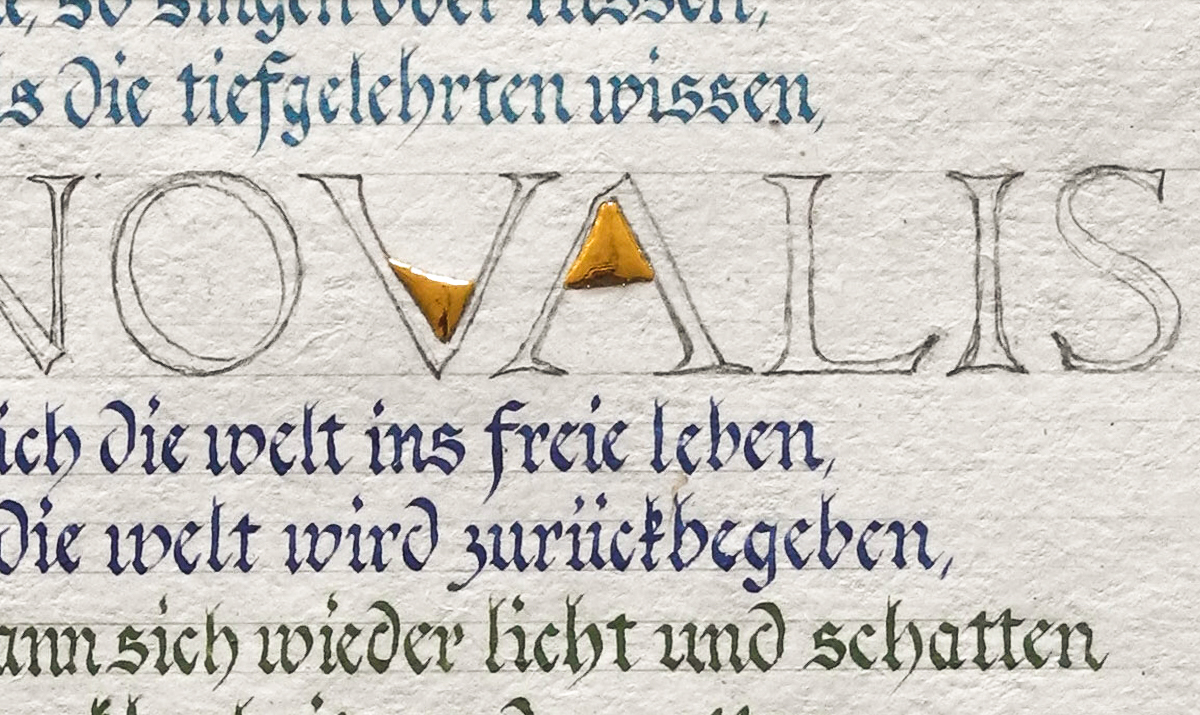 so singen oder küssen,
die tiefgelehrten wissen,
NOVALIS
ich die welt ins freie leben,
die welt wird zurückbegeben,
ann sich wieder licht und schatten